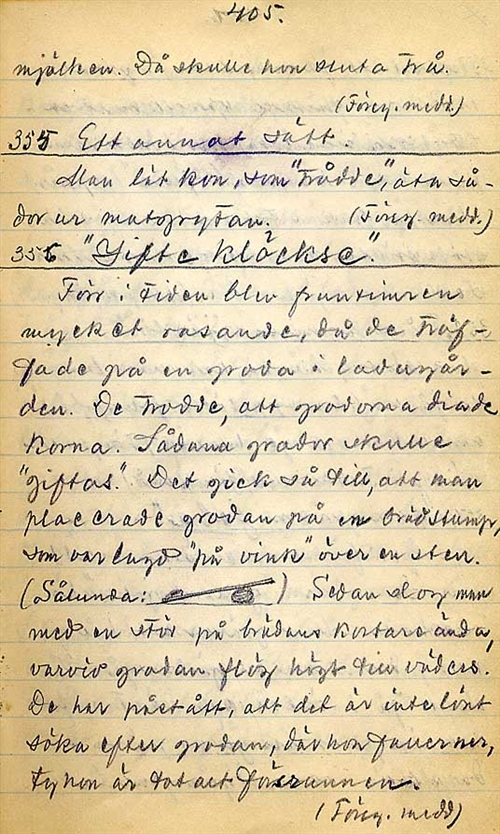 405.
mjölken. Då skulle hon sluta trå.
(Föreg. medd.)
355 Ett annat sätt.
Man lät kon, som "trådde", äta så-
dor ur matgrytan. (Föreg. medd.)
356 "Gifte klöckse".
Förr i tiden blev fruntimren
mycket rasande, då de träf-
fade på en groda i ladugår-
den. De trodde, att grodorna diade
korna. Sådana grodor skulle
"giftas". Det gick så till, att man
placerade grodan på en brädstump,
som var lagd "på vink" över en sten.
(Sålunda: ) Sedan slog man
med en stör på brädans kortare ända,
varvid grodan flög högt till väders.
De har påstått, att det är inte lönt
söka efter grodan, där hon faller ner,
ty hon är totalt försvunnen.
(Föreg. medd)